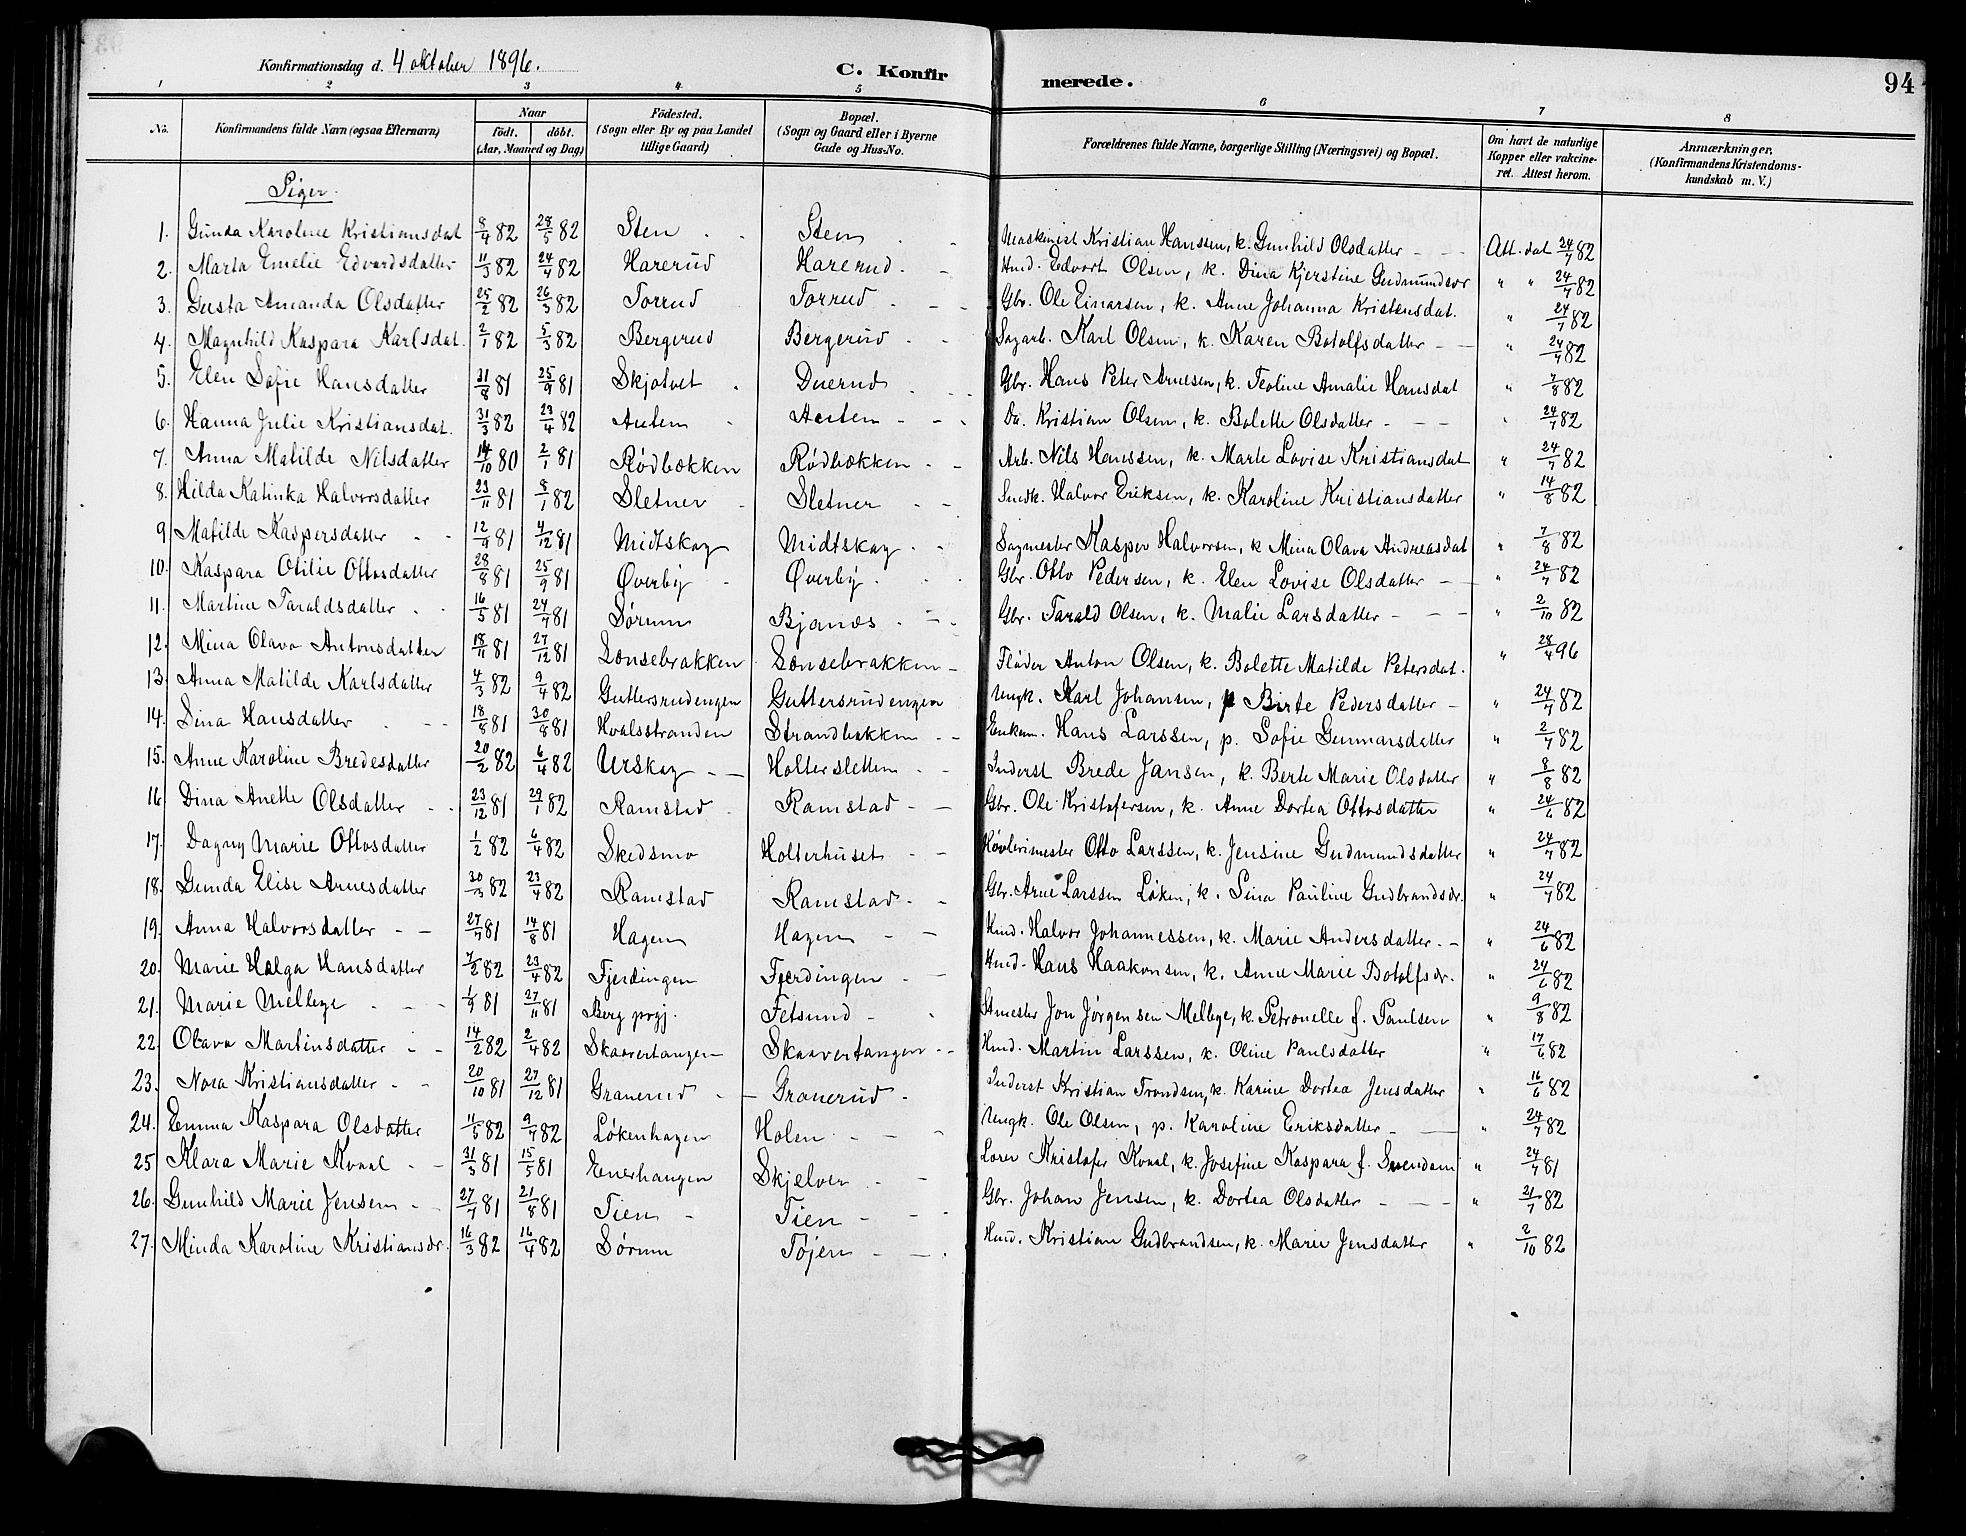 Konfirmationsdag d. 4 oktober 1896.
C. Konfirmerede.
94
1 2 3 4 5 6 7 8
No.
Konfirmandens fulde Navn (ogsaa Efternavn)
Naar
födt. döbt.
(Aar, Maaned og Dag)
Födested.
(Sogn eller By og paa Landet
tillige Gaard)
Bopæl.
(Sogn og Gaard eller i Byerne
Gade og Hus-No.
Forældrenes fulde Navne, borgerlige Stilling (Næringsvei) og Bopæl.
Om havt de naturlige
Kopper eller vakcine-
ret. Attest herom.
Anmærkninger,
(Konfirmandens Kristendoms-
kundskab m. V.)
Piger.
1. Gunda Karoline Kristiansdat 8/4 82 28/5 82 Sten Sten Maskinist Kristian Hanssen, k. Gunhild Olsdatter Att. dat 24/7 82
2. Marta Emelie Edvardsdatter 11/3 82 24/4 82 Harerud Harerud Hmd. Edvart Olsen, k. Dina Kjerstine Gudmundsdr " " 24/7 82
3. Gusta Amanda Olsdatter 25/2 82 26/5 82 Torrud Torrud Gbr. Ole Einarsen, k. Anne Johanna Kristensdat. " 24/7 82
4. Magnhild Kaspara Karlsdat. 2/1 82 5/3 82 Bergerud Bergerud Sagarb. Karl Olsen, k. Karen Botolfsdatter " 24/7 82
5. Elen Sofie Hansdatter 31/8 81 25/9 81 Skjatvet Duerud Gbr. Hans Peter Arnesen, k. Teoline Amalie Hansdat " 7/8 82
6. Hanna Julie Kristiansdat. 31/3 82 23/4 82 Asten Do. Kristian Olsen, k. Bolette Olsdatter " 24/7 82
7. Anna Matilde Nilsdatter 14/10 80 2/1 81 Rödbækken Rödbækken Arb. Nils Hanssen, k. Marte Lovise Kristiansdat " 24/7 82
8. Hilda Katinka Halvorsdatter 23/11 81 8/1 82 Sletner Sletner Smedk. Halvor Eriksen, k. Karoline Kristiansdatter " 14/8 82
9 Matilde Kaspersdatter 12/9 81 4/12 81 Midtskog Midtskog Sagmester Kasper Halvorsen, k Mina Olava Andreasdat " 7/8 82
10. Kaspara Otilie Ottosdatter 28/8 81 25/9 81 Øverby Øverby Gbr. Otto Pedersen, k. Elen Lovise Olsdatter " 24/7 82
11. Martine Taraldsdatter 16/5 81 24/7 81 Sørum Bjanes Gbr. Tarald Olsen, k. Malie Larsdatter " 2/10 82
12. Mina Olava Antonsdatter 18/11 81 27/12 81 Lænsebrakken Lænsebrakken Fløder Anton Olsen, k. Bolette Matilde Petersdat. " 28/4 96
13. Anna Matilde Karlsdatter 4/3 82 9/4 82 Guttersrudengen Guttersrudengen Ungk. Karl Johansen, p Birte Pedersdatter " 24/7 82
14. Lina Hansdatter 18/8 81 30/8 81 Hvalsstranden Strandbakken Enkem. Hans Larssen, p. Sofie Gunnarsdatter " 2/7 82
15. Anne Karoline Bredesdatter 20/2 82 6/4 82 Urskog Holtersletten Inderst Brede Jansen, k. Berte Marie Olsdatter " 8/8 82
16 Dina Anette Olsdatter 23/12 81 29/1 82 Ramstad Ramstad Gbr. Ole Kristofersen, k. Anne Dortea Ottosdatter " 24/6 82
17. Dagny Marie Ottosdatter 1/2 82 6/4 82 Skedsmo Holterhuset Høvlerimester Otto Larssen, k. Jensine Gudmundsdatter " 24/7 82
18. Gunda Elise Arnesdatter 30/3 82 23/4 82 Ramstad Ramstad Gbr. Arne Larssen Løken, k. Lina Pauline Gudbrandsdr. " 24/7 82
19. Anna Halvorsdatter 27/7 81 14/8 81 Hagen Hagen Hmd. Halvor Johannessen, k. Marie Andersdatter " 24/6 82
20. Marie Helga Hansdatter 7/2 82 23/4 82 Fjerdingen Fjerdingen Hmd. Hans Haakonsen, k. Anne Marie Botolfsdr. " 24/6 82
21. Marie Mellege 1/9 81 27/11 81 Berg prgj. Fetsund Jon Jørgensen Mellege, k. Petronelle f. Paulsen " 9/8 82
22. Olava Martinsdatter 14/2 82 2/4 82 Skaavertangen Skaavertangen Hmd. Martin Larssen, k. Oline Paulsdatter " 17/6 82
23. Nora Kristiansdatter 20/10 81 27/12 81 Granerud Granerud Inderst Kristian Trondsen, k. Karine Dortea Jensdatter " 16/6 82
24. Emma Kaspara Olsdatter 11/5 82 9/7 82 Løkenhagen Holen Ungk. Ole Olsen, p. Karoline Eriksdatter " 24/7 82
25 Klara Marie Kvaal 31/3 81 15/5 81 Enerhaugen Skjelver Kristofer Kvaal, k. Josefine Kaspara f. Svendsen " 24/7 81
26. Gunhild Marie Jensen 27/7 81 21/8 81 Tien Tien Gbr. Johan Jensen, k. Dortea Olsdatter " 21/7 82
27. Minda Karoline Kristiansdr. 16/3 82 16/4 82 Sørum Töjen Hmd. Kristian Gudbrandsen, k. Marie Jensdatter " 2/10 82